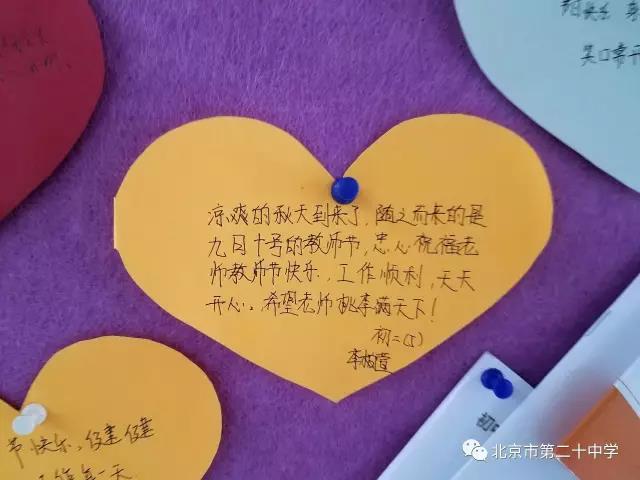 节日快乐
笑口常开
凉爽的秋天到来了,随之而来的是
九日十号的教师节,忠心祝福老
师教师节快乐,工作顺利,天天
开心。希望老师桃李满天下!
初二(5)
节快乐,健健
一天
初
北京市第二十中学